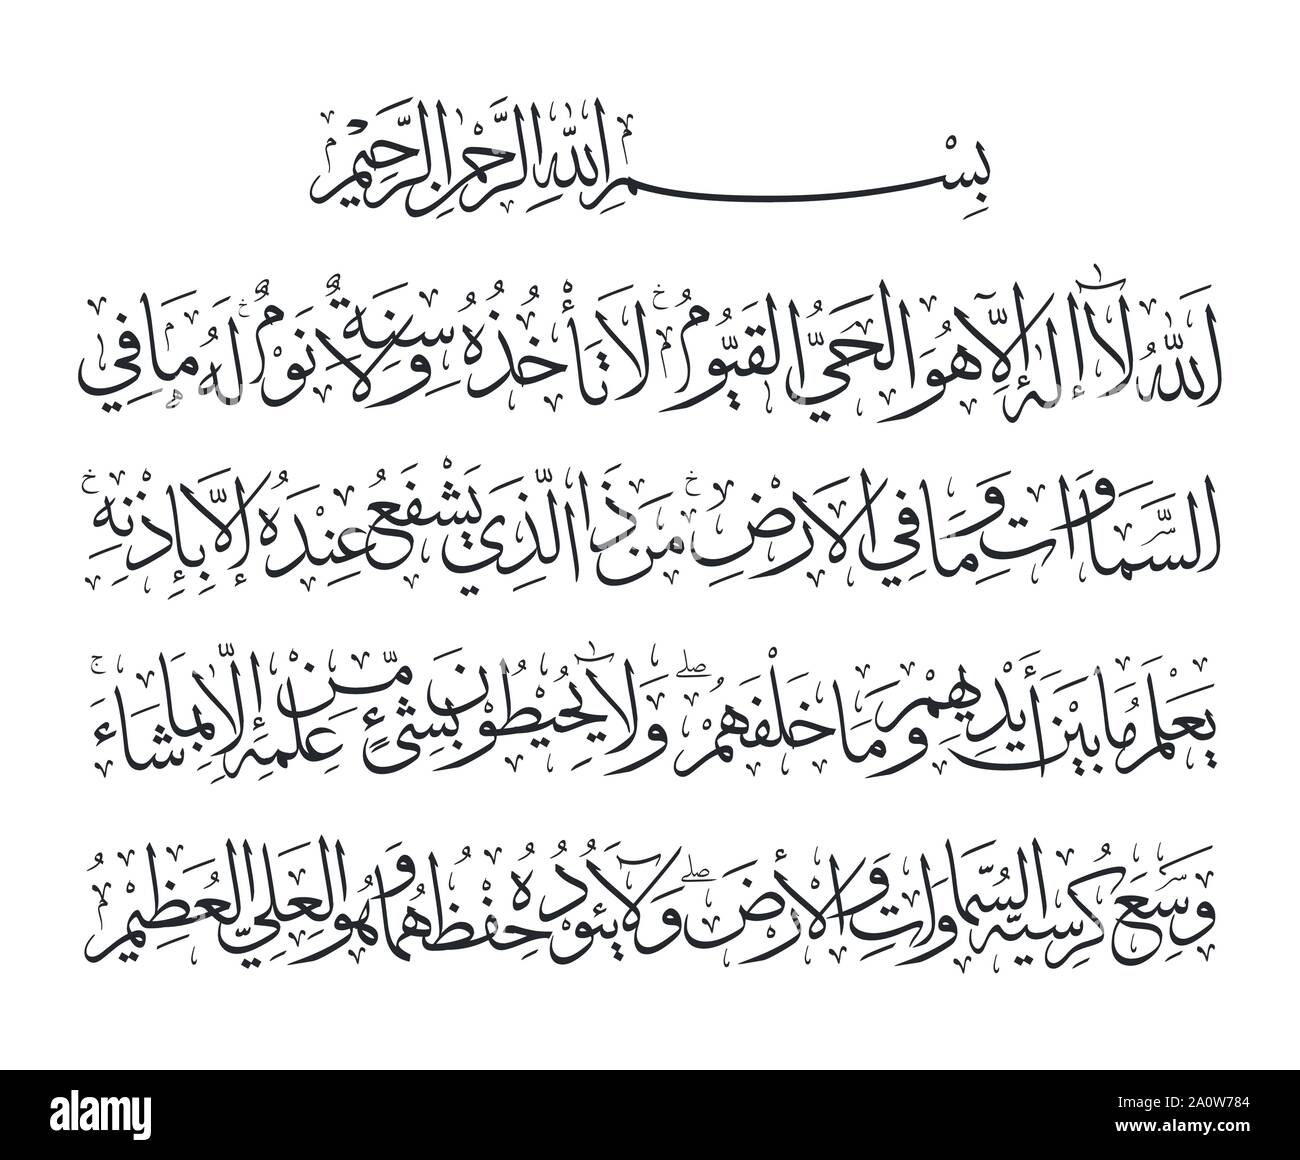 بِسْمِ اللَّهِ الرَّحْمَنِ الرَّحِيمِ
اللَّهُ لَا إِلَهَ إِلَّا هُوَ الْحَيُّ الْقَيُّومُ لَا تَأْخُذُهُ سِنَةٌ وَلَا نَوْمٌ لَهُ مَا فِي
السَّمَاوَاتِ وَمَا فِي الْأَرْضِ مَنْ ذَا الَّذِي يَشْفَعُ عِنْدَهُ إِلَّا بِإِذْنِهِ
يَعْلَمُ مَا بَيْنَ أَيْدِيهِمْ وَمَا خَلْفَهُمْ وَلَا يُحِيطُونَ بِشَيْءٍ مِّنْ عِلْمِهِ إِلَّا بِمَا شَاءَ
وَسِعَ كُرْسِيُّهُ السَّمَاوَاتِ وَالْأَرْضَ وَلَا يَئُودُهُ حِفْظُهُمَا وَهُوَ الْعَلِيُّ الْعَظِيمُ
alamy
Image ID: 2A0W784
www.alamy.com